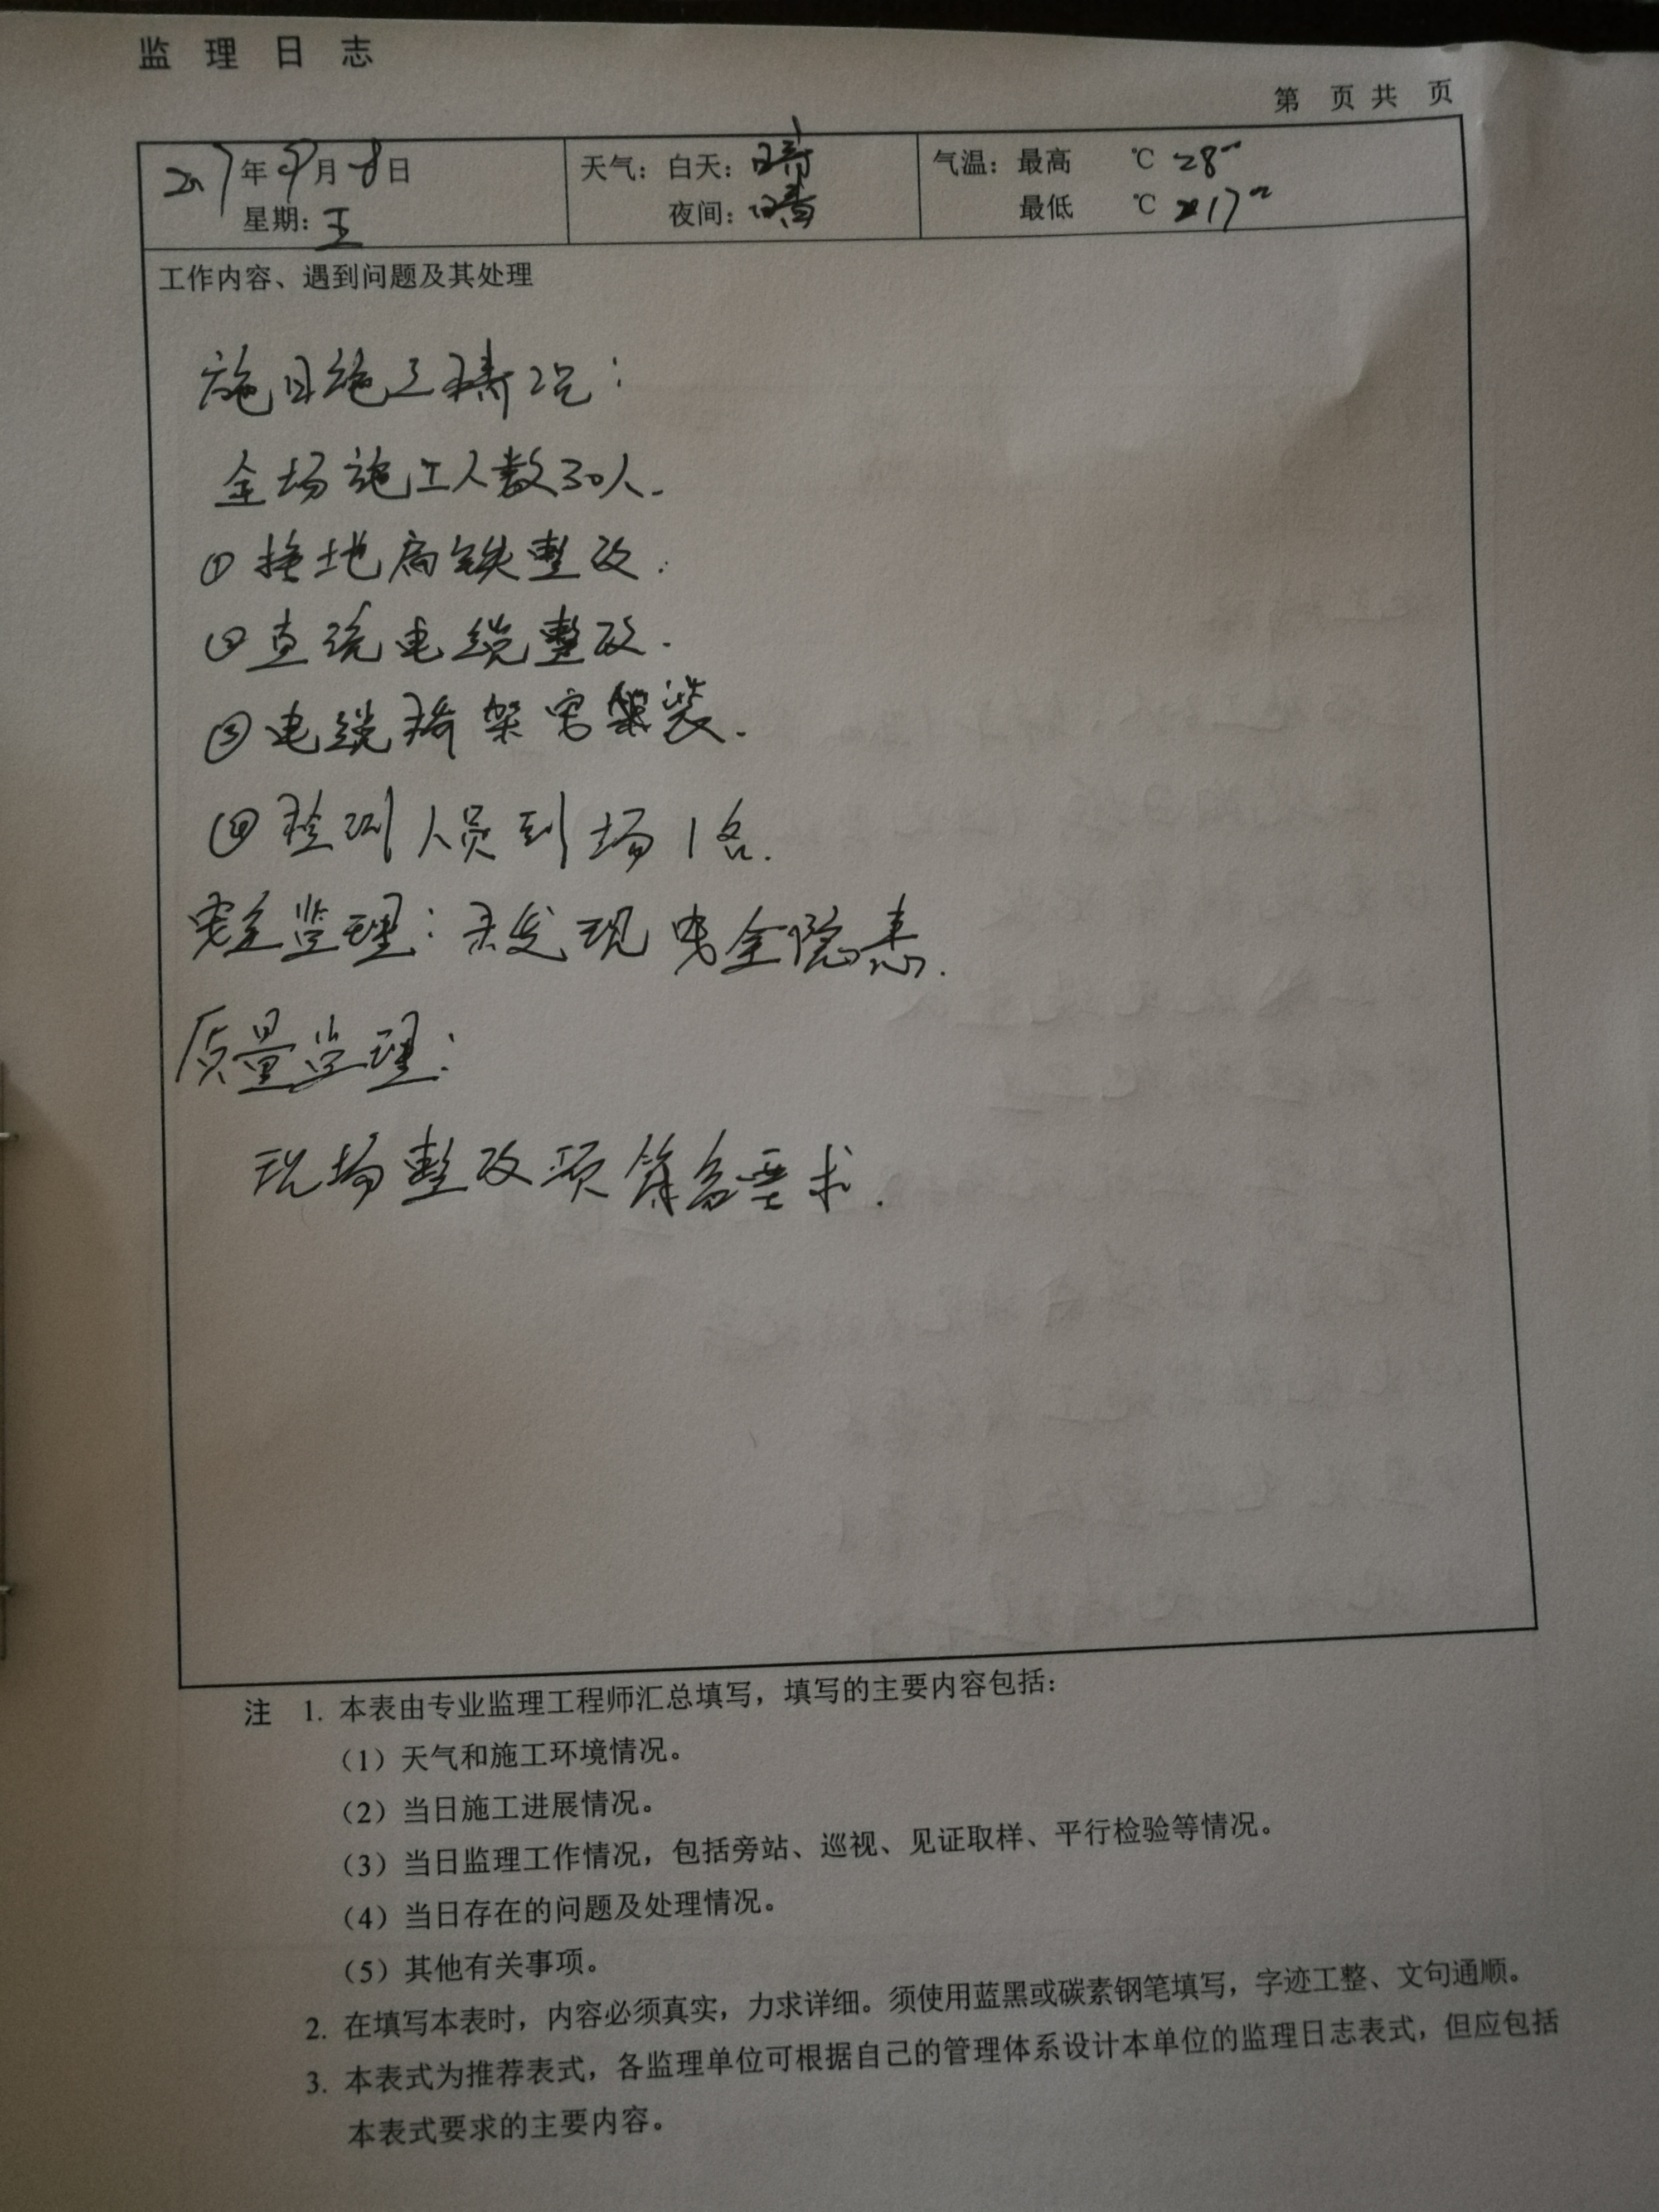 监理日志
第 页 共 页
2017年9月8日
星期:五
天气:白天:晴
夜间:晴
气温:最高 ℃ 28
最低 ℃ 17
工作内容、遇到问题及其处理
施工情况:
全场施工人数30人.
① 接地扁铁整改.
② 直流电缆整改.
③ 电缆桥架安装.
④ 检测人员到场1名.
安全监理:未发现安全隐患.
质量监理:
现场整改项符合要求.
注 1. 本表由专业监理工程师汇总填写,填写的主要内容包括:
(1)天气和施工环境情况。
(2)当日施工进展情况。
(3)当日监理工作情况,包括旁站、巡视、见证取样、平行检验等情况。
(4)当日存在的问题及处理情况。
(5)其他有关事项。
2. 在填写本表时,内容必须真实,力求详细。须使用蓝黑或碳素钢笔填写,字迹工整、文句通顺。
3. 本表式为推荐表式,各监理单位可根据自己的管理体系设计本单位的监理日志表式,但应包括
本表式要求的主要内容。